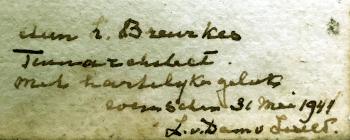 L. Breurkes
Tuinarchitect.
Met hartelijke geluk
wenschen 31 Mei 1941
L. v. Dam v.